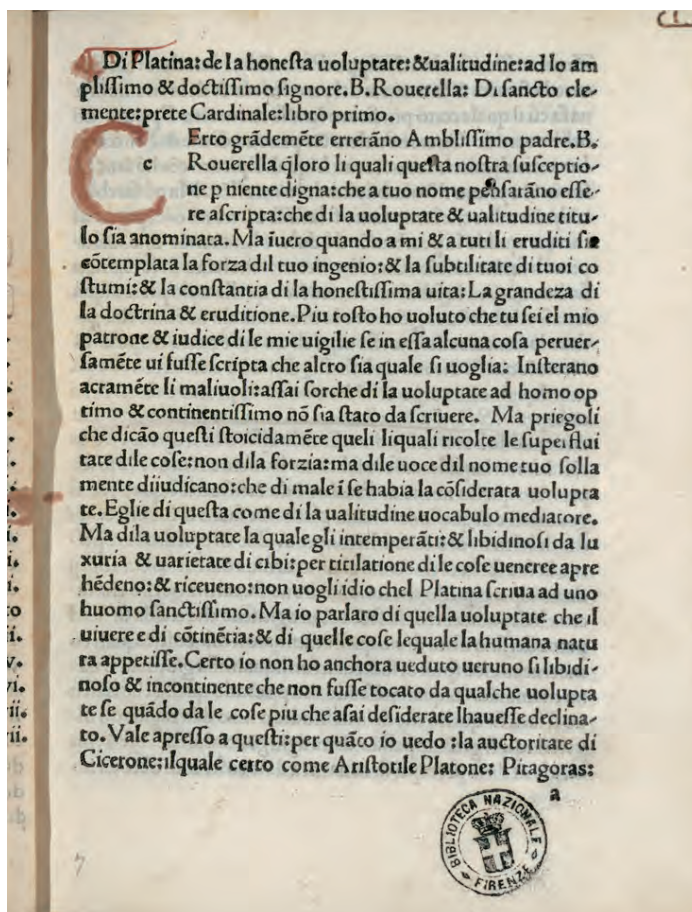 Di Platina: de la honesta uoluptate: & ualitudine: ad lo am
plissimo & doctissimo signore. B. Rouerella: Di sancto cle-
mente: prete Cardinale: libro primo.
C
c
Erto grãdemẽte errerãno Amblissimo padre. B.
Rouerella q̃loro li quali questa nostra susceptio-
ne p niente digna: che a tuo nome pensarãno esse-
re ascripta: che di la uoluptate & ualitudine titu-
lo sia anominata. Ma ĩuero quando a mi & a tuti li eruditi sie
cõtemplata la forza dil tuo ingenio: & la subtilitate di tuoi co
stumi: & la constantia di la honestissima uita: La grandeza di
la doctrina & eruditione. Piu tosto ho uoluto che tu sei el mio
patrone & iudice di le mie uigilie se in essa alcuna cosa peruer-
samẽte ui fusse scripta che altro sia quale si uoglia: Insterano
acramẽte li maliuoli: assai forche di la uoluptate ad homo op
timo & continentissimo nõ sia stato da scriuere. Ma priegoli
che dicão questi stoicidamẽte queli liquali ricolte le superflui
tate dile cose: non dila forzia: ma dile uoce dil nome tuo solla
mente diiudicano: che di male ĩ se habia la cõsiderata uolupta
te. Eglie di questa come di la ualitudine uocabulo mediatore.
Ma dila uoluptate la quale gli intemperãti: & libidinosi da lu
xuria & uarietate di cibi: per titilatione di le cose ueneree apre
hẽdeno: & riceueno: non uogli idio chel Platina scriua ad uno
huomo sanctissimo. Ma io parlaro di quella uoluptate che il
uiuere e di cõtinẽtia: & di quelle cose lequale la humana natu
ra appetisse. Certo io non ho anchora ueduto ueruno si libidi-
noso & incontinente che non fusse tocato da qualche uolupta
te se quãdo da le cose piu che asai desiderate lhauesse declina-
to. Vale apresso a questi: per quãto io uedo: la auctoritate di
Cicerone: ilquale certo come Aristotile Platone: Pitagoras:
a
BIBLIOTECA NAZIONALE
FIRENZE